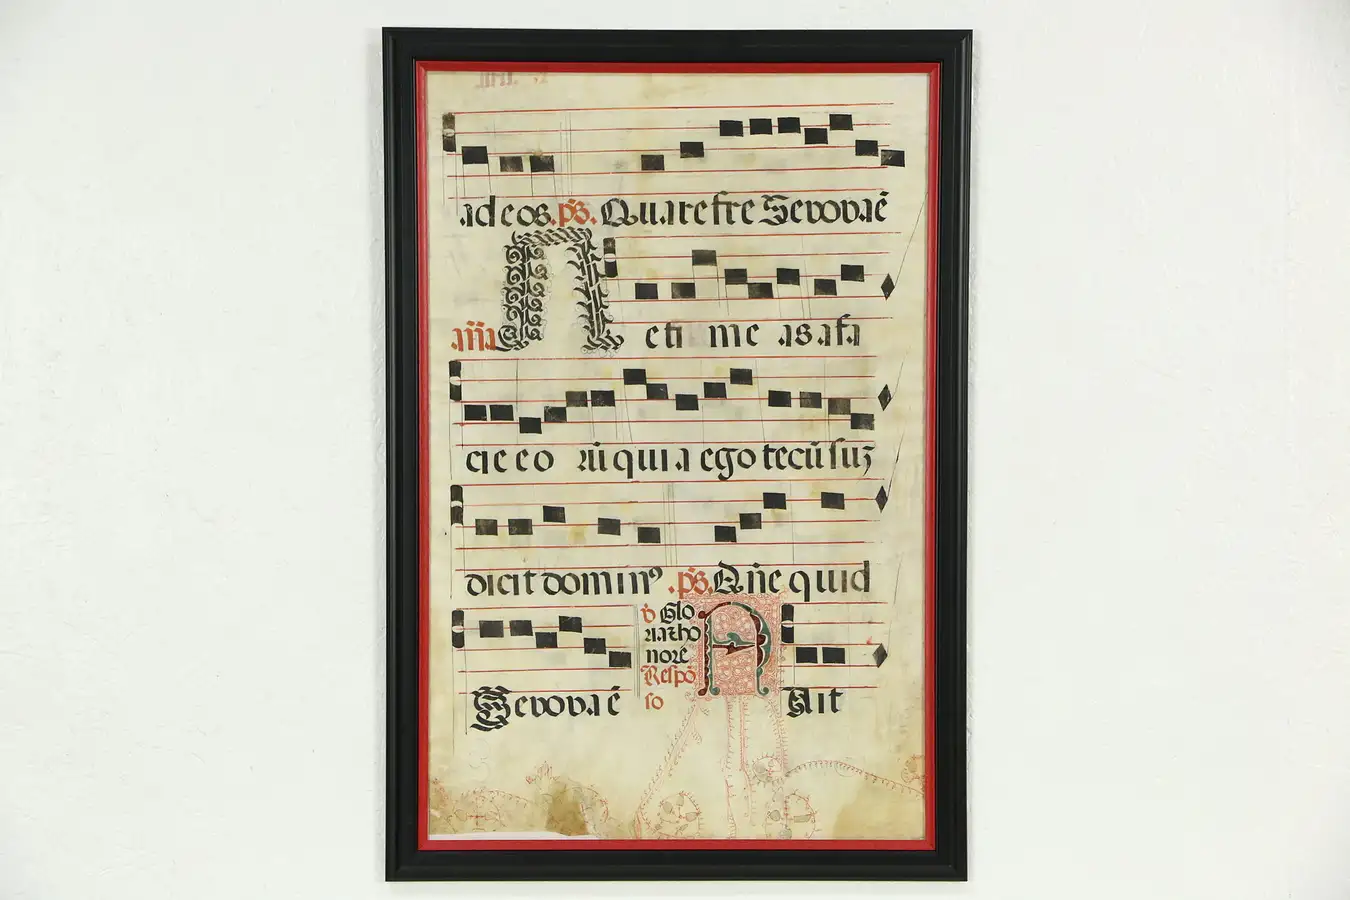 ad eos. ps. Quare fre Sevovaē
aña N e ti me as a fa
cie eo rū qui a ego tecū suz
dicit dominꝰ .ps. Qñe quid
Sevovaē
v Glo
ria ⁊ ho
nore
Respō
so
A Ait